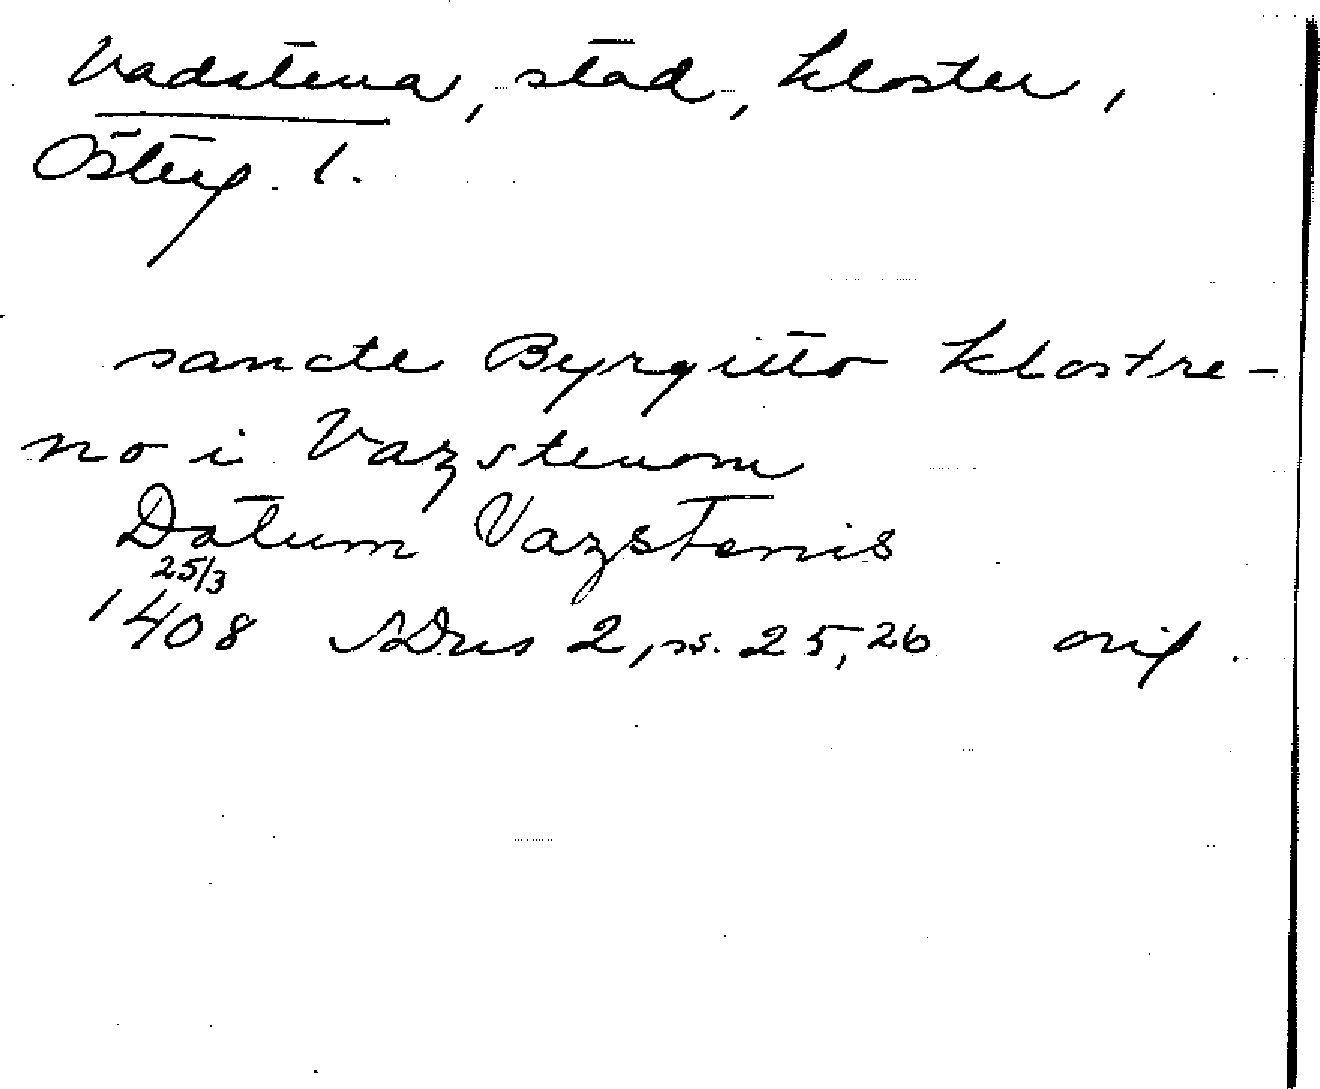 Vadstena, stad, kloster,
Österg. l.
sancte Byrgitto klostre-
no i Vazstenom
Datum Vazstenis
25/3
1408 SDns 2, ss. 25, 26 orig.